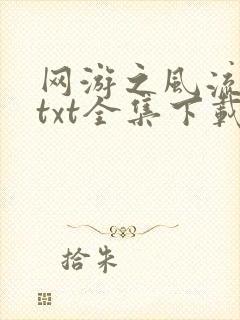 网游之风流
txt全集下载
拾朱